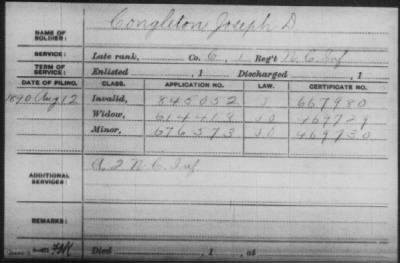 NAME OF SOLDIER: Congleton Joseph D.
SERVICE: Late rank, Co. C, 1 Reg't N. C. Inf
TERM OF SERVICE: Enlisted , 1 Discharged , 1
DATE OF FILING. CLASS. APPLICATION NO. LAW. CERTIFICATE NO.
1890 Aug 12 Invalid, 845052 667980
Widow, 614418 469729
Minor, 676573 469730
ADDITIONAL SERVICES: A. 2 N. C. Inf.
REMARKS:
Died , 1 , at